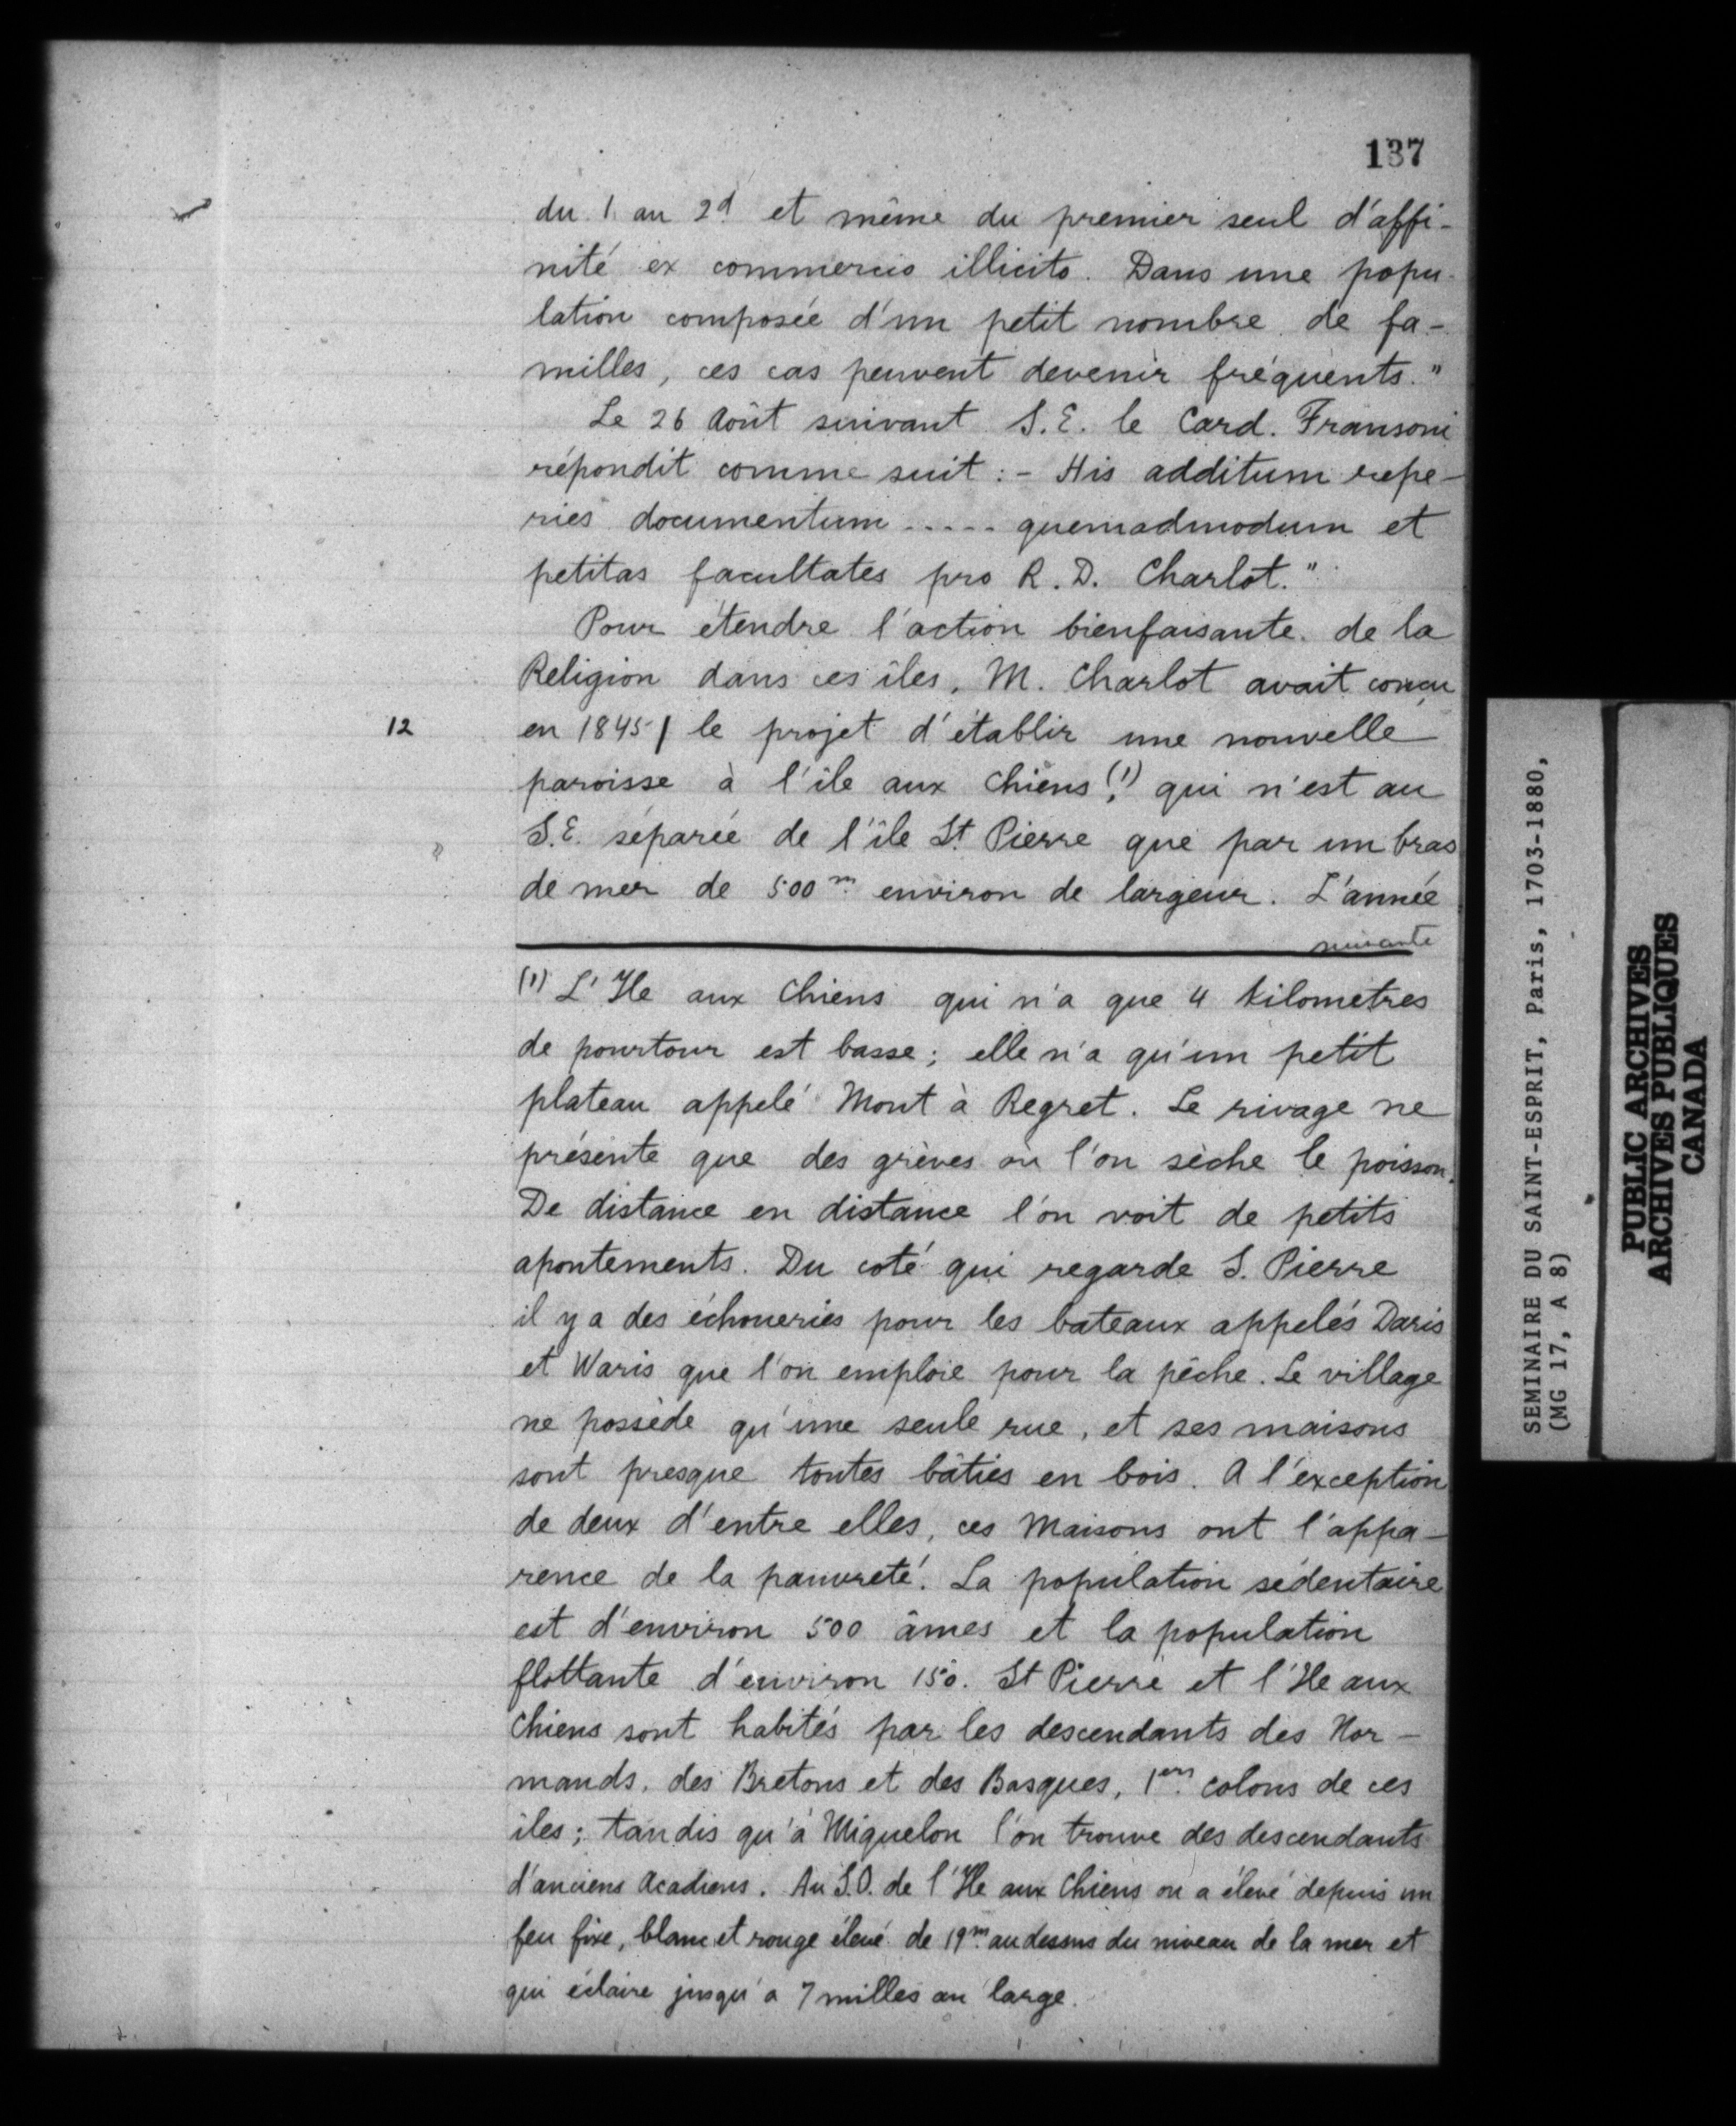 137
du 1 au 2d et même du premier seul d'affi-
nité ex commercio illicito. Dans une popu-
lation composée d'un petit nombre de fa-
milles, ces cas peuvent devenir fréquents."
Le 26 Août suivant S.E. le Card. Fransoni
répondit comme suit :- His additum repe-
ries documentum ..... quemadmodum et
petitas facultates pro R.D. Charlot."
Pour étendre l'action bienfaisante de la
Religion dans ces îles, M. Charlot avait conçu
12 en 1845 | le projet d'établir une nouvelle
paroisse à l'île aux Chiens (1), qui n'est au
S.E. séparée de l'île St Pierre que par un bras
de mer de 500m environ de largeur. L'année
suivante
(1) L'Ile aux Chiens qui n'a que 4 kilometres
de pourtour est basse; elle n'a qu'un petit
plateau appelé Mont à Regret. Le rivage ne
présente que des grèves où l'on sèche le poisson.
De distance en distance l'on voit de petits
apontements. Du coté qui regarde S. Pierre
il y a des échoueries pour les bateaux appelés Daris
et Waris que l'on emploie pour la pêche. Le village
ne possède qu'une seule rue, et ses maisons
sont presque toutes bâties en bois. A l'exception
de deux d'entre elles, ces Maisons ont l'appa-
rence de la pauvreté. La population sédentaire
est d'environ 500 âmes et la population
flottante d'environ 150. St Pierre et l'Ile aux
Chiens sont habités par les descendants des Nor-
mands, des Bretons et des Basques, 1ers colons de ces
îles; tandis qu'à Miquelon l'on trouve des descendants
d'anciens Acadiens. Au S.O. de l'Ile aux Chiens on a élevé depuis un
feu fixe, blanc et rouge élevé de 19m au dessus du niveau de la mer et
qui éclaire jusqu'a 7 milles au large.
SEMINAIRE DU SAINT-ESPRIT, Paris, 1703-1880,
(MG 17, A 8)
PUBLIC ARCHIVES
ARCHIVES PUBLIQUES
CANADA